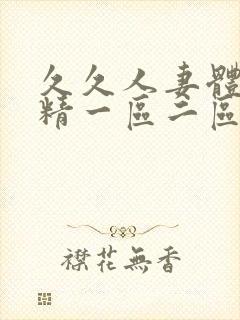 久久人妻體
精一區二區
襟花無香